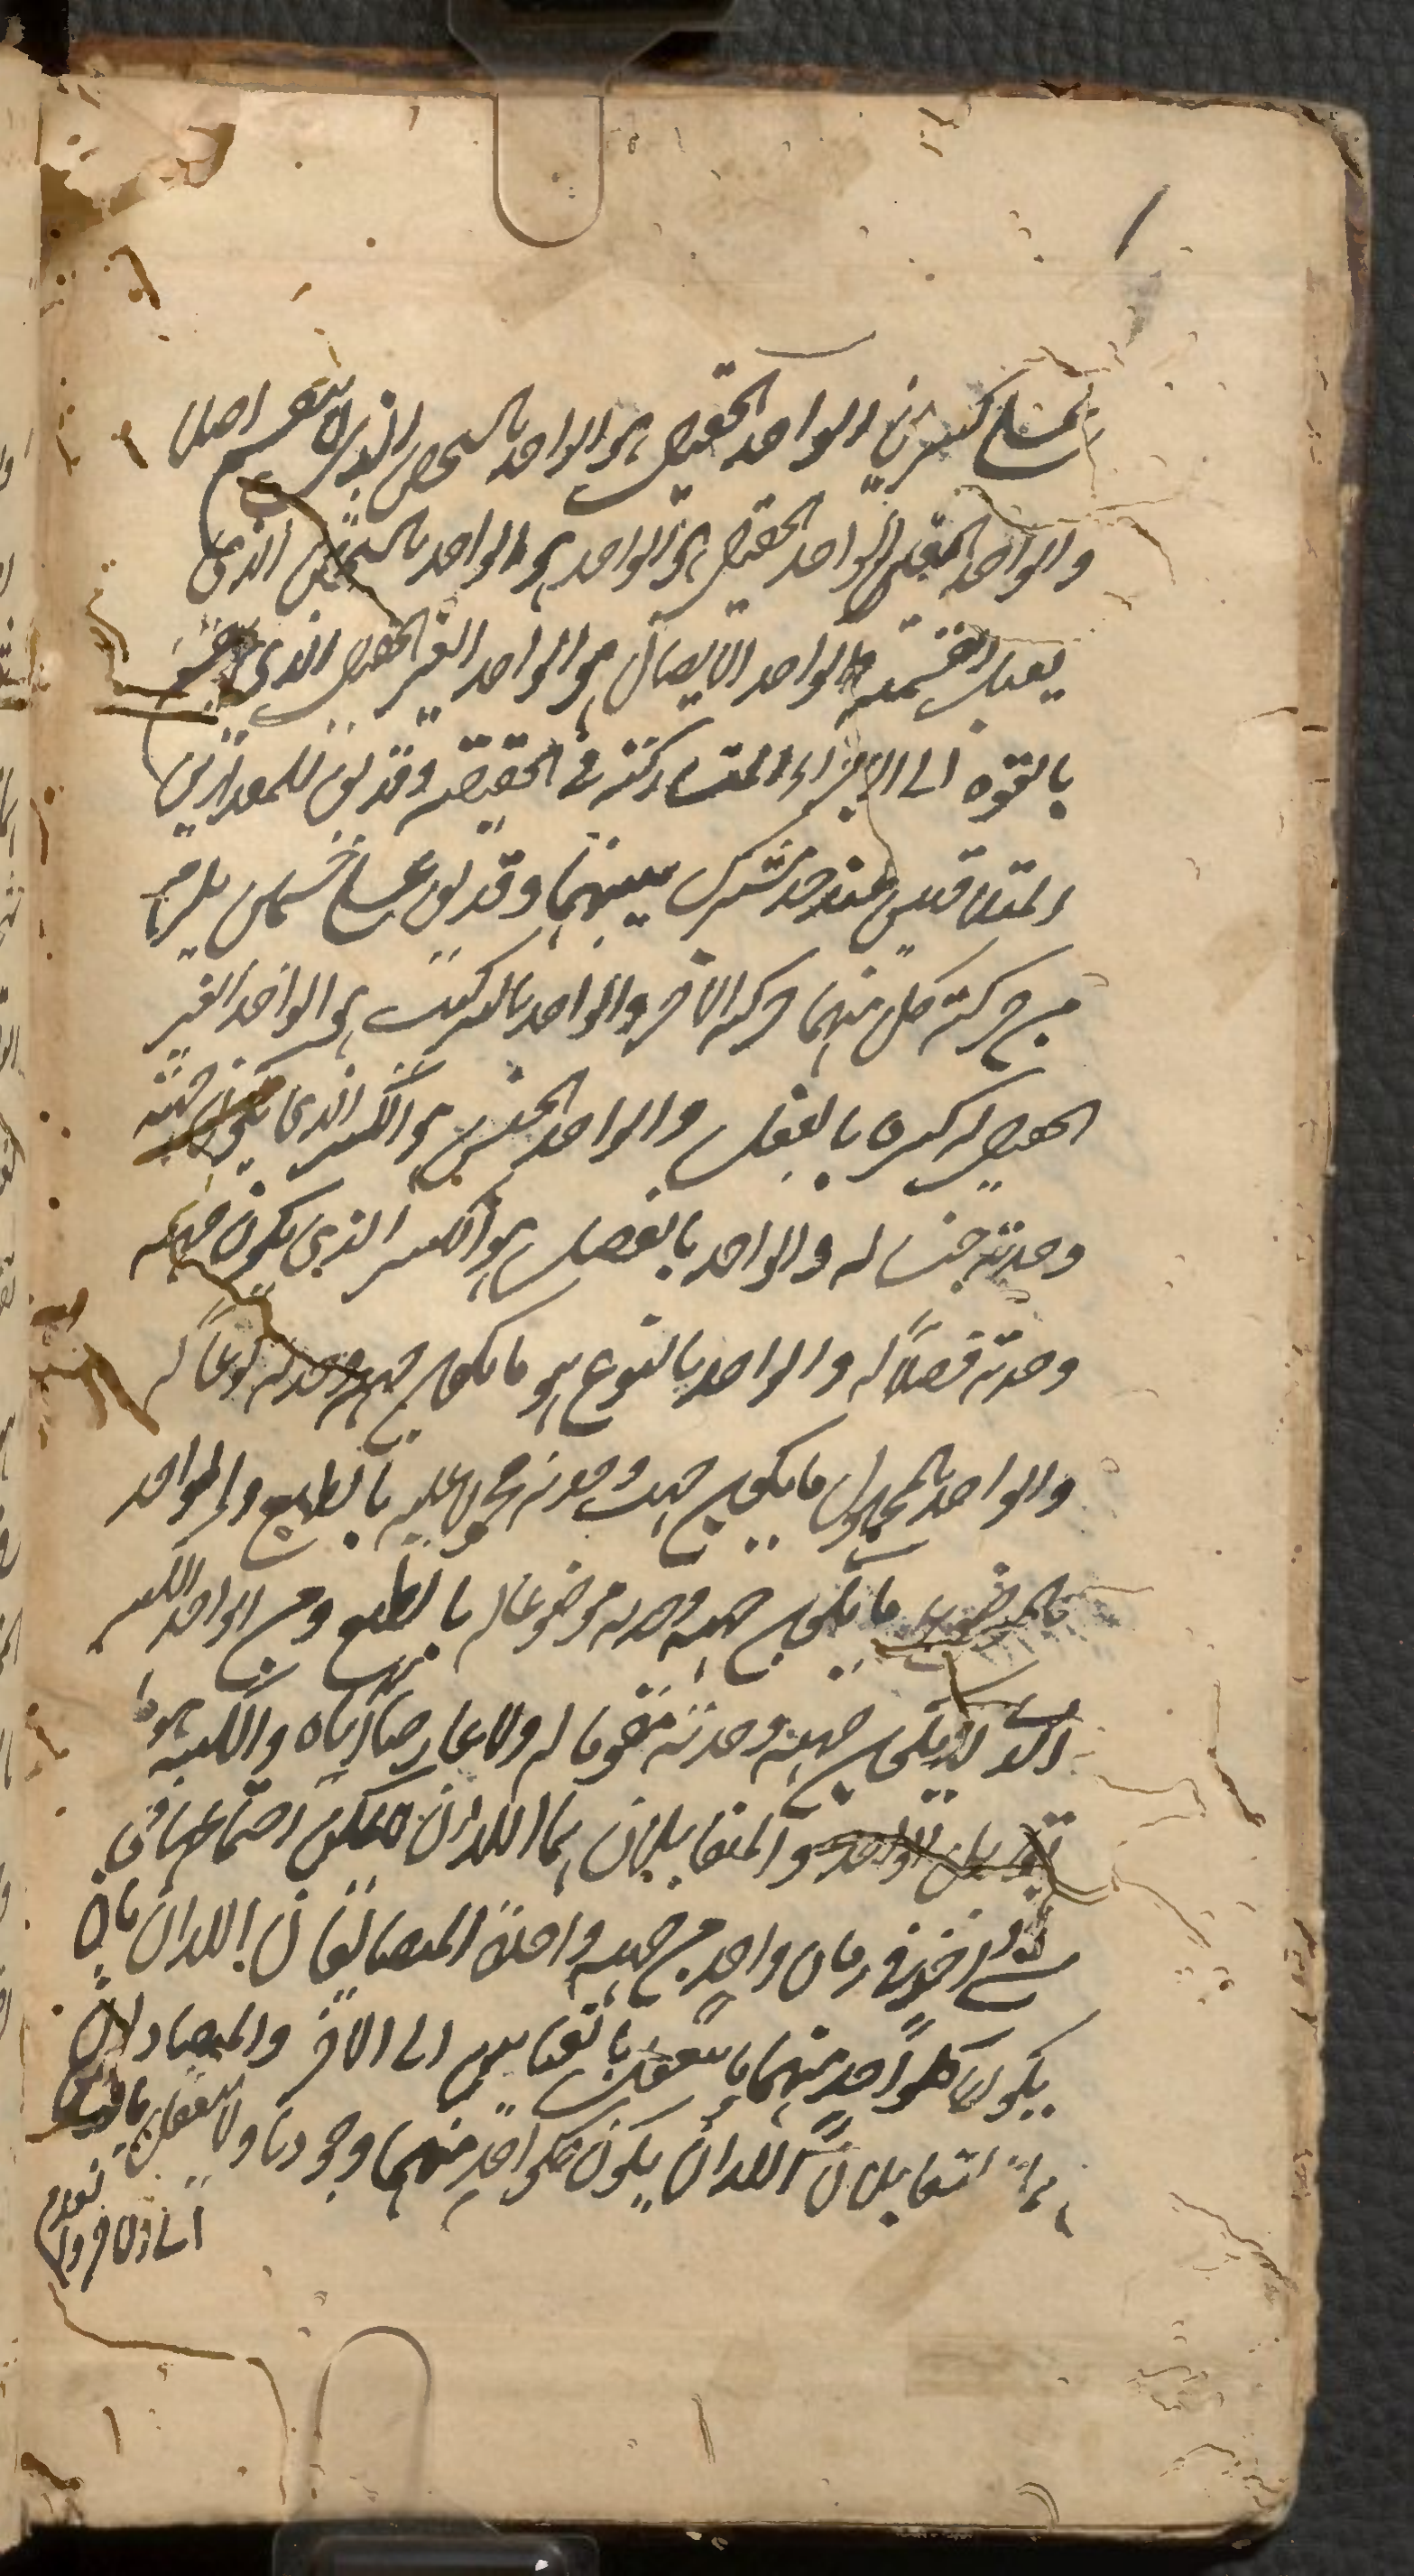 الواحد الحقيقي هو الواحد بالشخص الذي لا ينقسم اصلا
والواحد الغير الحقيقي هو الواحد بالشخص الذي
يقبل القسمة والواحد الاتصال هو الواحد الغير الحقيقي الذي
بالقوة الى الاجزاء المتشاركة في الحقيقة وقد يق للمقدارين
المتلاقيين عند حد مشترك بينهما وقد يق على جسمين يلزم
من حركة كل منهما حركة الاخر والواحد بالتركيب هو الواحد الغير
الحقيقي له كثرة بالفعل والواحد الجنس هو الكثير الذي يكون جهة
وحدته جنسا له والواحد بالفصل هو الكثير الذي يكون جهة
وحدته فصلاً له والواحد بالنوع هو ما يكون جهة وحدته نوعاً له
والواحد بالمحمول ما يكون جهة وحدته محمولا عليه بالطبع والواحد
بالموضوع ما يكون جهة وحدته موضوعا له بالطبع ومن الواحد الكثير
الذي لا يكون جهة وحدته مقوما له ولا عارضا اياه والكثير هو ما
يقابل الواحد والمتقابلان هما اللذان لا يمكن اجتماعهما في
في زمان واحد من جهة واحدة المتضايفان اللذان
يكون كل واحد منهما يتعقل بالقياس الى الاخر والمتضادان
المتقابلان اللذان يكون كل واحد منهما وجوديا ولا يتعقل بالقياس
الى الاخر